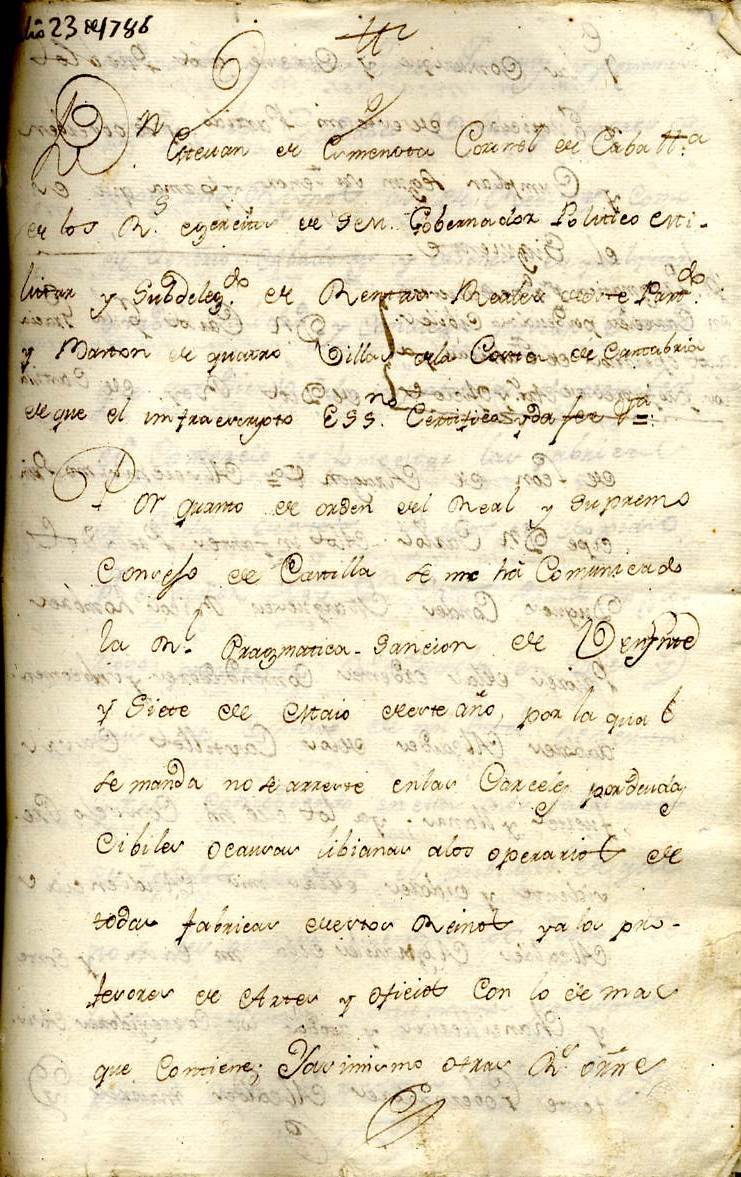 lio 23 de 1786
Dn Estevan de Cimenota Coronel de Caballa
de los Rs. egercitos de S.M. Gobernador Politico Mi-
litar y Subdelegdo. de Rentas Reales deste Partdo.
y Marton de quatro Villas de la Costa de Cantabria
de que el infraescripto ESSno. Certifica y da fee Va=
Por quanto de orden del Real y Supremo
Consejo de Castilla se me há Comunicado
la Rl. Pragmatica-Sancion de Veynte
y Siete de Maio deeste año, por la qual
se manda no se arreste en las Carceles por deudas
Cibiles o causas libianas a los operarios de
todas fabricas de estos Reinos y a los pro-
fesores de Artes y oficios Con lo demas
que Contiene; Y asimismo otras Rs. orñes